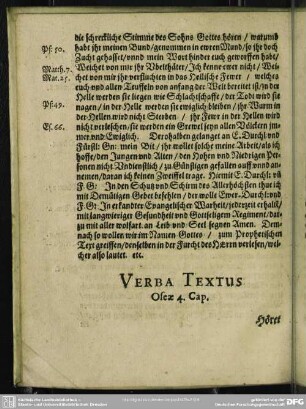 die schreckliche Stimme des Sohns Gottes hören / warumb
Pſ: 50. habt ihr meinen Bund / genommen in ewren Mund / so ihr doch
Zucht gehasset / vnnd mein Wort hinder euch geworffen habt /
Matth. 7. Weichet von mir ihr Vbelthäter / Ich kenne ewer nicht / Wei-
Mat. 25. chet von mir ihr verfluchten in das Hellische Fewer / welches
euch vnd allen Teuffeln von anfang der Welt bereitet ist / in der
Pſ: 49. Helle werden sie liegen wie Schlachtschaffe / der Todt wird sie
nagen / in der Helle werden sie ewiglich bleiben / ihr Wurm in
der Hellen wird nicht Sterben / ihr Fewr in der Hellen wird
Eſ. 66. nicht verleschen / sie werden ein Grewel seyn allen Völckern jm-
mer vnd Ewiglich. Derohalben gelanget an E. Durchl: vnd
Fürstl: Gn: mein Bit / ihr wollet solche meine Arbeit / als ich
hoffe / den Jungen vnd Alten / den Hohen vnd Nidrigen Per-
sonen nicht Vndienstlich / zu Günstigen gefallen auff vnd an-
nemen / daran ich keinen Zweiffel trage. Hiemit E. Durchl: vñ
F. G: In den Schutz vnd Schirm des Allerhöchsten thue ich
mit Demütigen Gebet befehlen / der wolle Ewer. Durchl: vnd
F. G: In erkandter Evangelischer Warheit / jederzeit erhaltẽ /
mit langwiriger Gesundheit vnd Gottseligem Regiment / dar-
zu mit aller wolfart. an Leib vnd Seel segnen Amen. Dem-
nach so wollen wir im Namen Gottes / zum Prophetischen
Text greiffen / denselben in der Furcht des HErrn verlesen / wel-
cher also lautet. etc.
VERBA TEXTUS
Oseæ 4. Cap.
Höret